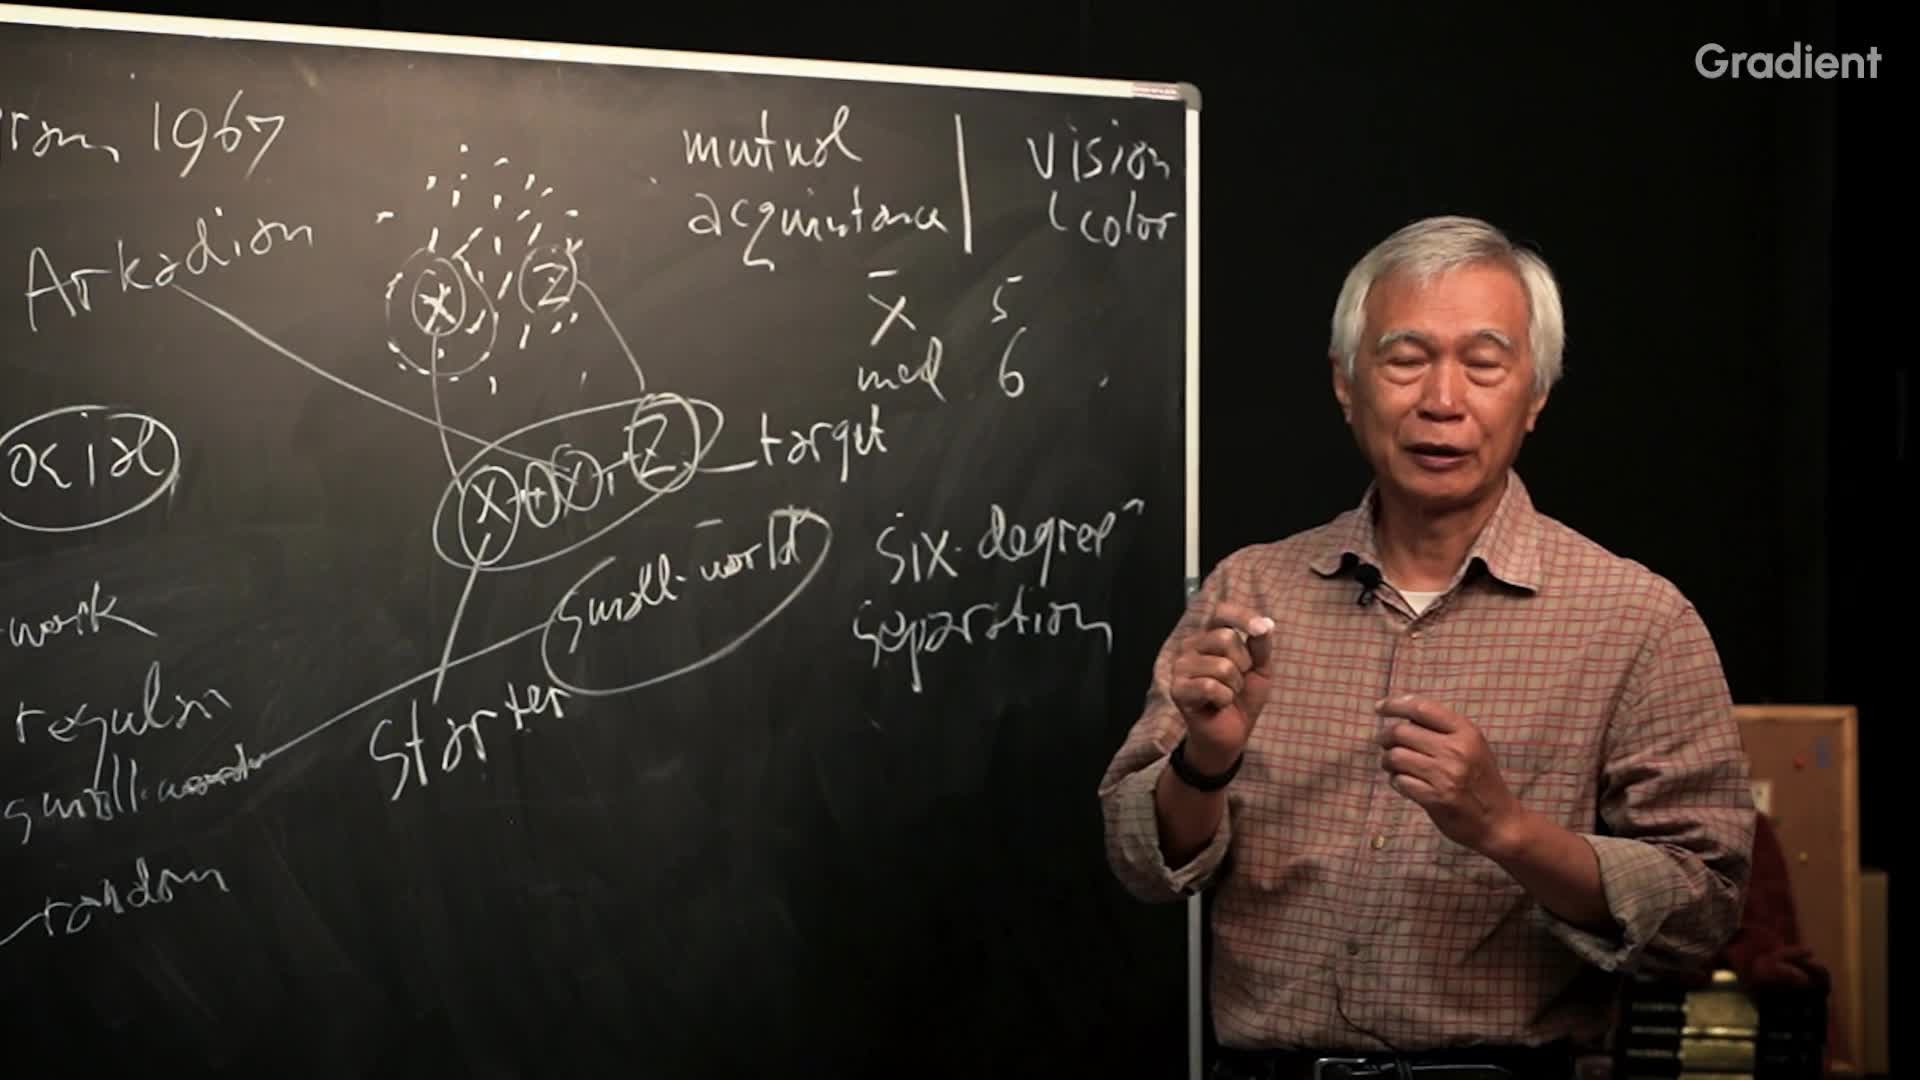 Gradient
1967
mutual
acquintance
vision
color
Arkadian
X
Z
X̄ 5
med 6
ocial
X + X, Z
target
small-world
six-degree
separation
work
regular
small-world
Starter
random